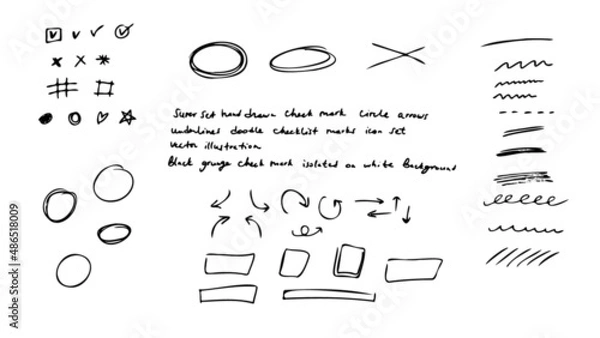 Super set hand drawn check mark circle arrows
underlines doodle checklist marks icon set
vector illustration
Black grunge check mark isolated on white Background
Adobe Stock | #486518009